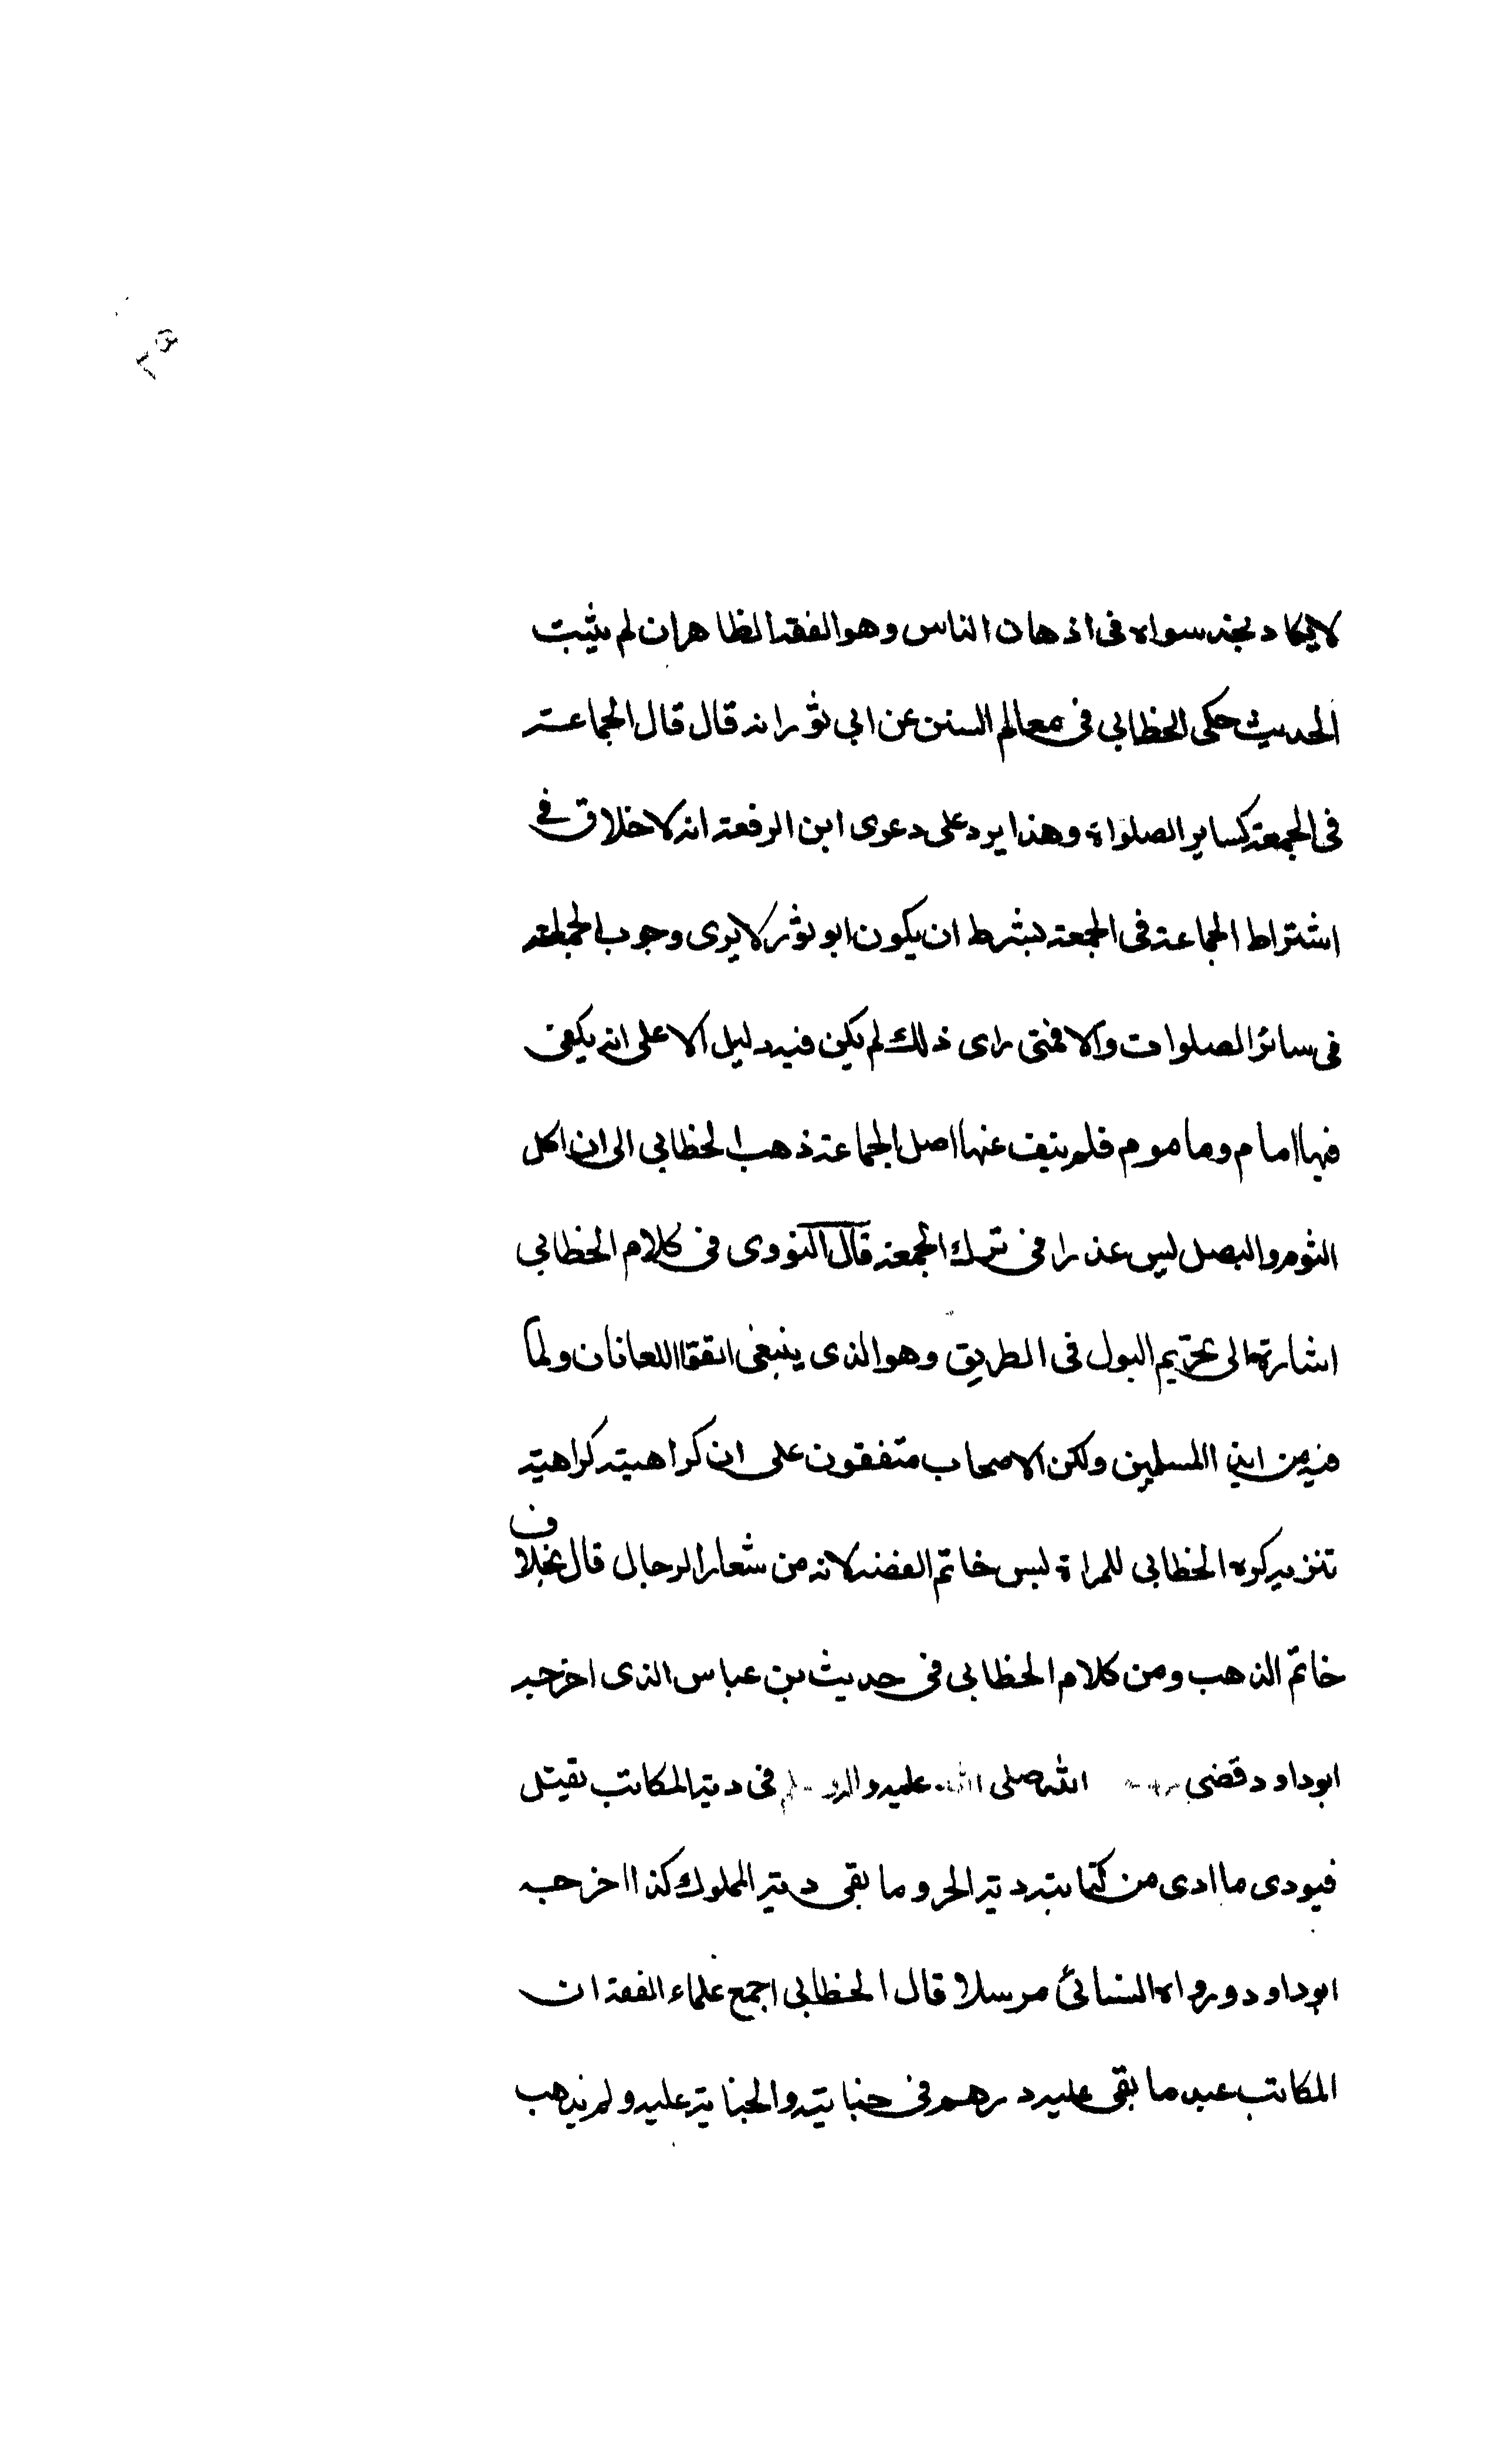 لايكاد نجد سواه فى اذهان الناس وهو الفقه الظاهر ان لم يثبت
الحديث حكى الخطابي فى معالم السنن عن ابي ثور انه قال قال الجماعة
فى الجمعة كساير الصلواة وهذا يرد على دعوى ابن الرفعة انه لاخلاق فى
اشتراط الجماعة فى الجمعة بشرط ان يكون ابو ثور لايرى وجوب الجماعة
فى سائر الصلوات والا فمتى راى ذلك لم يكن فيه دليل الا على انه يكفى
فيها امام وماموم فلم ينف عنها اصل الجماعة ذهب الخطابي الى ان اكل
الثوم والبصل ليس عذرا فى ترك الجمعة قال النووى فى كلام الخطابي
اشارة الى تحريم البول فى الطريق وهو الذى ينبغى اتقوا اللعانان ولما
فيه من ايذا المسلمين ولكن الاصحاب متفقون على ان كراهيته كراهية
تنزيه كره الخطابي للمراة لبس خاتم الفضة لانه من شعار الرجال قال بخلاف
خاتم الذهب ومن كلام الخطابي فى حديث بن عباس الذى اخرجه
ابوداود قضى الله صلى الله عليه واله فى دية المكاتب يقتل
فيودى ما ادى من كتابته دية الحر وما بقى دية المملوك كذا اخرجه
ابوداود ورواه النسائى مرسلا قال الخطابي اجمع علماء الفقه ان
المكاتب عبد ما بقى عليه درهم فى جنايته والجناية عليه ولم يذهب